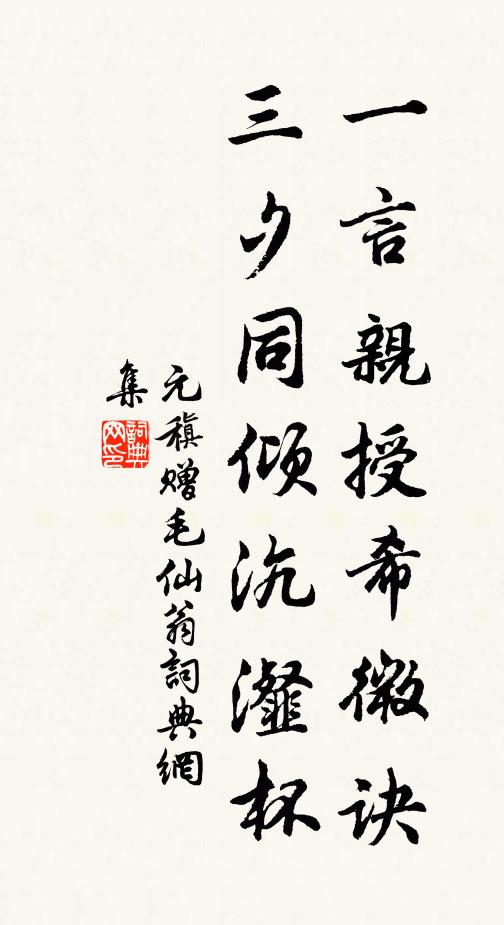 一言親授希微訣
三夕同傾沆瀣杯
元稹贈毛仙翁詞典網
集
詞典
网印